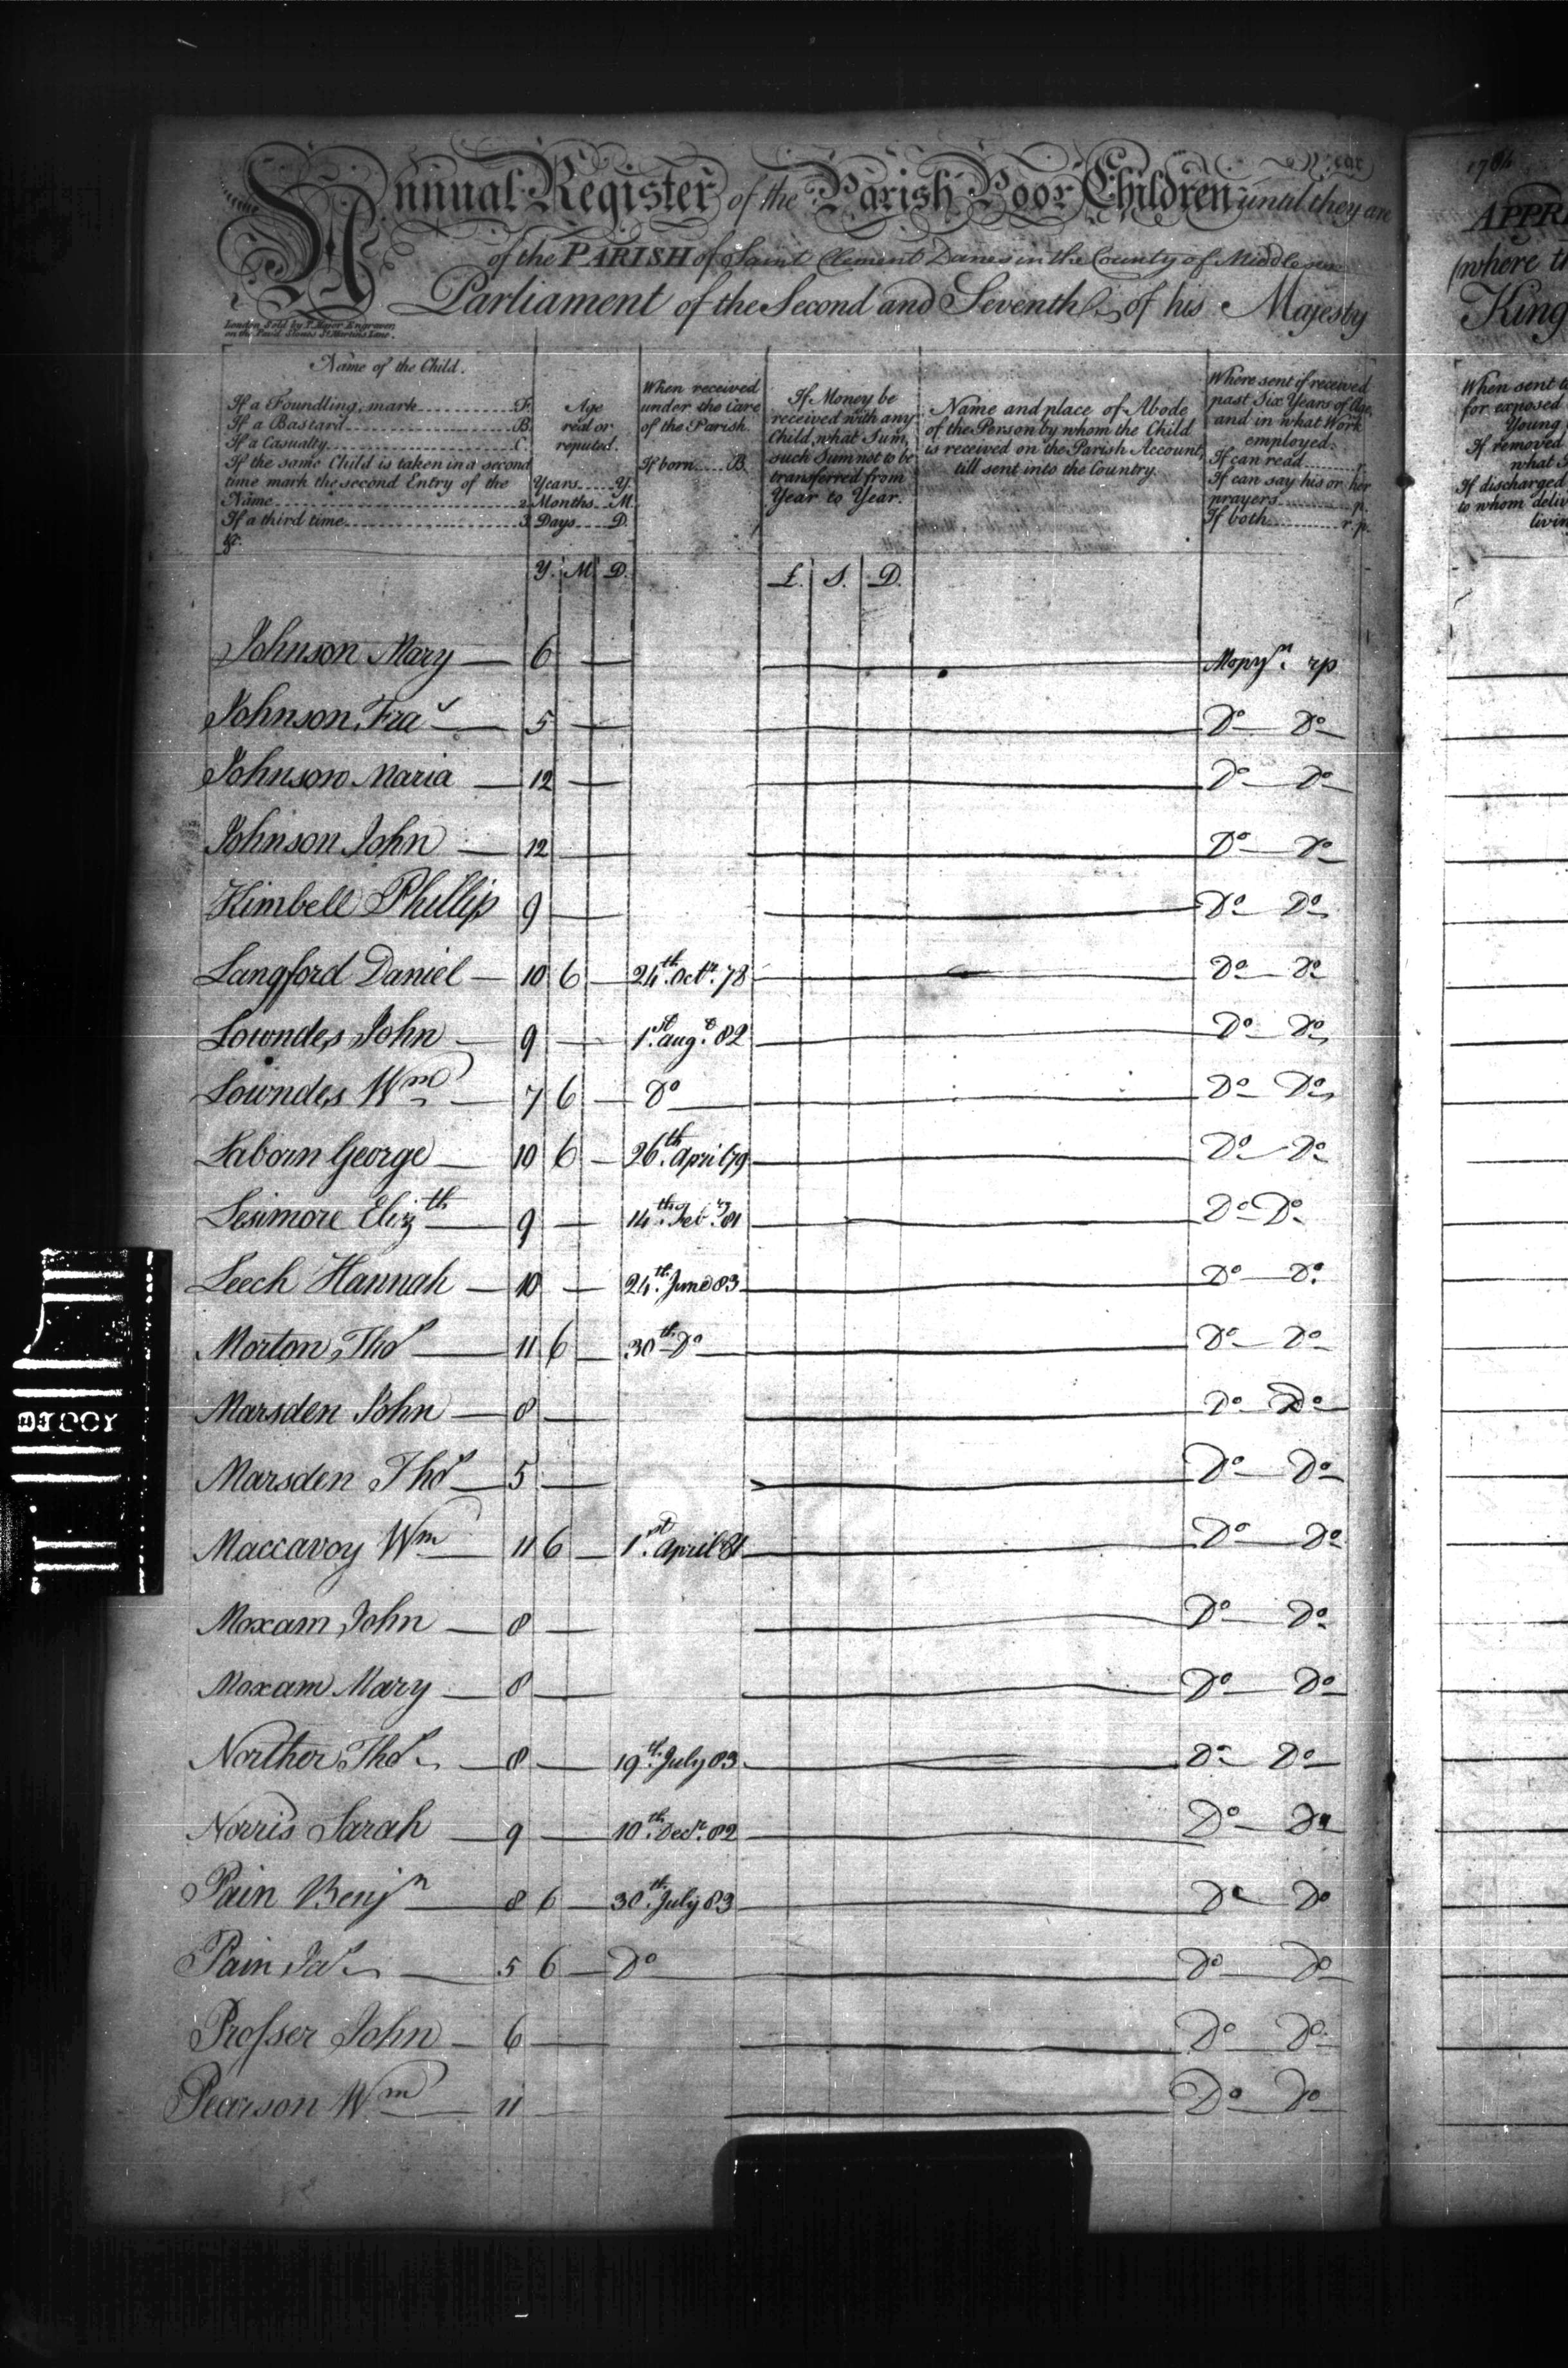 Year
Annual Register of the Parish Poor Children until they are
of the PARISH of Saint Clement Danes in the County of Middlesex
Parliament of the Second and Seventh of his Majesty
London Sold by on the Pav'd Stones St. Martins Lane.
Name of the Child.
If a Foundling, mark F.
If a Bastard B.
If a Casualty C.
If the same Child is taken in a second
time mark the second Entry of the
Name 2
If a third time 3.
&c.
Age
real or
reputed.
Years Y.
Months M.
Days D.
When received
under the Care
of the Parish.
If born B.
If Money be
received with any
Child, what Sum,
such Sum not to be
transferred from
Year to Year.
Name and place of Abode
of the Person by whom the Child
is received on the Parish Account,
till sent into the Country.
Where sent if received
past Six Years of Age,
and in what Work
employed.
If can read r.
If can say his or her
prayers p.
If both r. p.
Y. M. D. £. S. D.
Johnson Mary — 6 — rp
Johnson Fra^s — 5 — D^o D^o
Johnson Maria — 12 — D^o D^o
Johnson John — 12 — D^o D^o
Kimbell Phillip 9 — D^o D^o
Langford Daniel — 10 6 — 24th Octr. 78 D^o D^o
Lowndes John — 9 — 1st. augt. 82 D^o D^o
Lowndes Wm — 7 6 — D^o D^o D^o
George — 10 6 — 26th. April 79 D^o D^o
Elizth — 9 — 14th. Feby. 81 D^o D^o
Leech Hannah — 10 — 24th. June 83 D^o D^o
Morton Thos — 11 6 — 30th D^o D^o D^o
Marsden John — 8 — D^o D^o
Marsden Thos — 5 — D^o D^o
Maccavoy Wm — 11 6 — 1st. April 81 D^o D^o
Moxam John — 8 — D^o D^o
Moxam Mary — 8 — D^o D^o
Norther Thos — 8 — 19th. July 83 D^o D^o
Norris Sarah — 9 — 10th. Decr. 82 D^o D^o
Pain Benjn — 8 6 — 30th. July 83 D^o D^o
Pain Jas — 5 6 — D^o D^o D^o
Profser John — 6 — D^o D^o
Pearson Wm — 11 — D^o D^o
1784
APPR
(where th
King
When sent to
for exposed
Young
If removed
what
If discharged
to whom deliv
livin